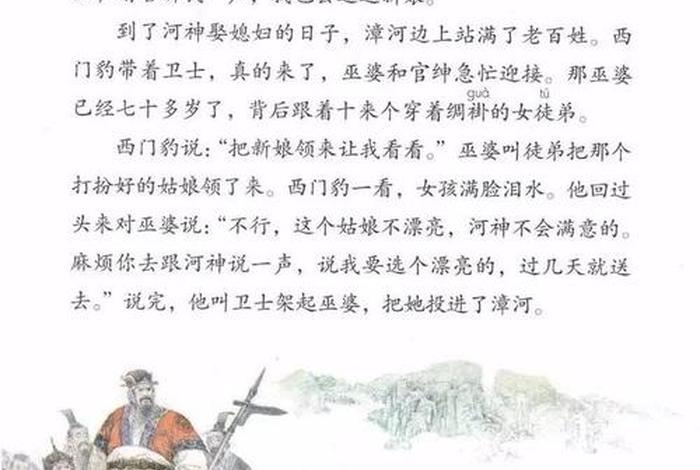 到了河神娶媳妇的日子，漳河边上站满了老百姓。西
门豹带着卫士，真的来了，巫婆和官绅急忙迎接。那巫婆
guà tú
已经七十多岁了，背后跟着十来个穿着绸褂的女徒弟。
西门豹说：“把新娘领来让我看看。”巫婆叫徒弟把那个
打扮好的姑娘领了来。西门豹一看，女孩满脸泪水。他回过
头来对巫婆说：“不行，这个姑娘不漂亮，河神不会满意的。
麻烦你去跟河神说一声，说我要选个漂亮的，过几天就送
去。”说完，他叫卫士架起巫婆，把她投进了漳河。